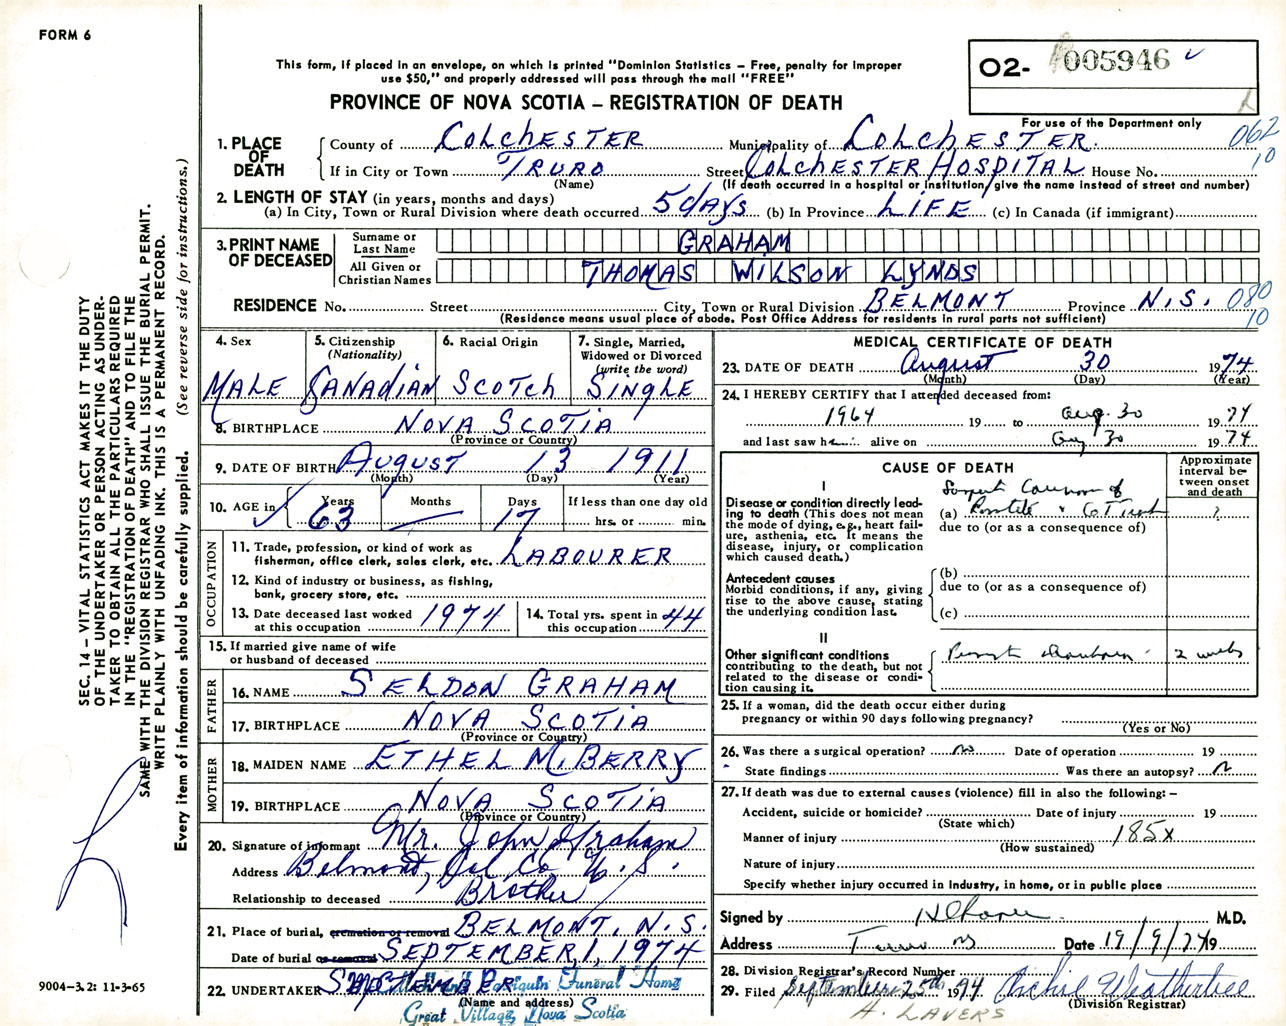 FORM 6
This form, if placed in an envelope, on which is printed "Dominion Statistics – Free, penalty for improper
use $50," and properly addressed will pass through the mail "FREE"
PROVINCE OF NOVA SCOTIA – REGISTRATION OF DEATH
O2- 005946
For use of the Department only
062
10
1. PLACE OF DEATH
County of COLCHESTER Municipality of COLCHESTER.
If in City or Town TRURO Street COLCHESTER HOSPITAL House No.
(Name) (If death occurred in a hospital or institution, give the name instead of street and number)
2. LENGTH OF STAY (in years, months and days)
(a) In City, Town or Rural Division where death occurred 5 dAYS (b) In Province LIFE (c) In Canada (if immigrant)
3. PRINT NAME OF DECEASED
Surname or Last Name GRAHAM
All Given or Christian Names THOMAS WILSON LYNDS
RESIDENCE No. Street City, Town or Rural Division BELMONT Province N.S. 080
10
(Residence means usual place of abode. Post Office Address for residents in rural parts not sufficient)
4. Sex 5. Citizenship (Nationality) 6. Racial Origin 7. Single, Married, Widowed or Divorced (write the word)
MALE CANADIAN SCOTCH SINGLE
8. BIRTHPLACE NOVA SCOTIA
(Province or Country)
9. DATE OF BIRTH AUGUST 13 1911
(Month) (Day) (Year)
10. AGE in Years Months Days If less than one day old
63 — 17 hrs. or min.
OCCUPATION
11. Trade, profession, or kind of work as
fisherman, office clerk, sales clerk, etc. LABOURER
12. Kind of industry or business, as fishing,
bank, grocery store, etc.
13. Date deceased last worked
at this occupation 1974
14. Total yrs. spent in
this occupation 44
15. If married give name of wife
or husband of deceased
FATHER
16. NAME SELDON GRAHAM
17. BIRTHPLACE NOVA SCOTIA
(Province or Country)
MOTHER
18. MAIDEN NAME ETHEL M. BERRY
19. BIRTHPLACE NOVA SCOTIA
(Province or Country)
20. Signature of informant Mr. John Graham
Address Belmont, Col. Co. N.S.
Relationship to deceased Brother
21. Place of burial, cremation or removal BELMONT, N.S.
Date of burial or removal SEPTEMBER, 1, 1974
22. UNDERTAKER
Funeral Home
(Name and address)
Great Village, Nova Scotia
MEDICAL CERTIFICATE OF DEATH
23. DATE OF DEATH August 30 1974
(Month) (Day) (Year)
24. I HEREBY CERTIFY that I attended deceased from:
1964 19 to Aug. 30 1974
and last saw him alive on Aug 30 1974
CAUSE OF DEATH
Approximate interval between onset and death
I
Disease or condition directly lead-
ing to death (This does not mean
the mode of dying, e.g., heart fail-
ure, asthenia, etc. It means the
disease, injury, or complication
which caused death.)
(a) ?
due to (or as a consequence of)
Antecedent causes
Morbid conditions, if any, giving
rise to the above cause, stating
the underlying condition last.
(b)
due to (or as a consequence of)
(c)
II
Other significant conditions
contributing to the death, but not
related to the disease or condi-
tion causing it.
2 weeks
25. If a woman, did the death occur either during
pregnancy or within 90 days following pregnancy?
(Yes or No)
26. Was there a surgical operation? no Date of operation 19
State findings Was there an autopsy?
27. If death was due to external causes (violence) fill in also the following: –
Accident, suicide or homicide? Date of injury 19
(State which)
Manner of injury 185X
(How sustained)
Nature of injury
Specify whether injury occurred in industry, in home, or in public place
Signed by M.D.
Address Truro NS Date 19/9/74 19
28. Division Registrar's Record Number
29. Filed September 25th 1974 Archie Weatherbee
(Division Registrar)
A. LAVERS
SEC. 14 – VITAL STATISTICS ACT MAKES IT THE DUTY
OF THE UNDERTAKER OR PERSON ACTING AS UNDER-
TAKER TO OBTAIN ALL THE PARTICULARS REQUIRED
IN THE "REGISTRATION OF DEATH" AND TO FILE THE
SAME WITH THE DIVISION REGISTRAR WHO SHALL ISSUE THE BURIAL PERMIT.
WRITE PLAINLY WITH UNFADING INK. THIS IS A PERMANENT RECORD.
Every item of information should be carefully supplied. (See reverse side for instructions.)
9004–3.2: 11-3-65